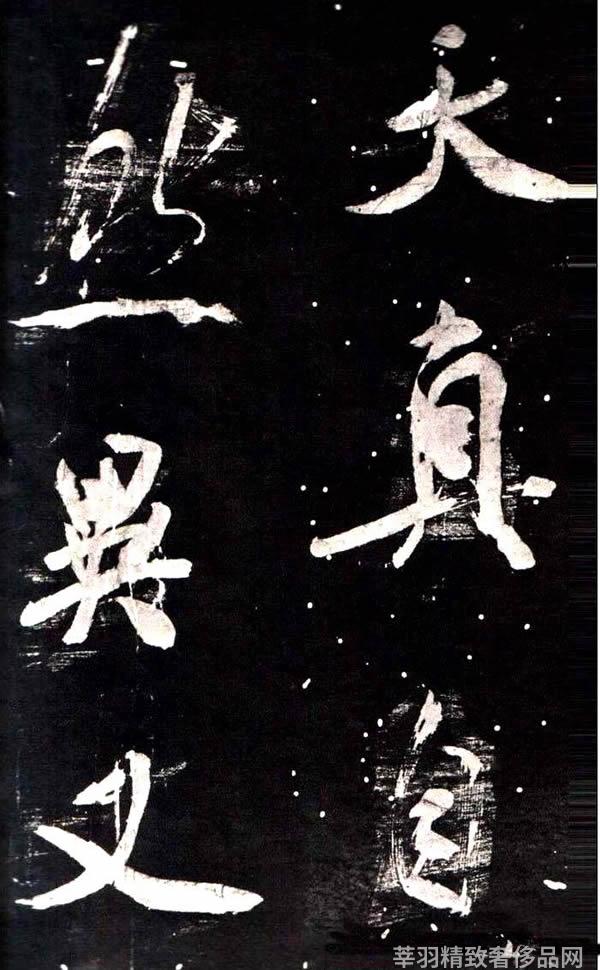 天真自
然異又
莘羽精致奢侈品网